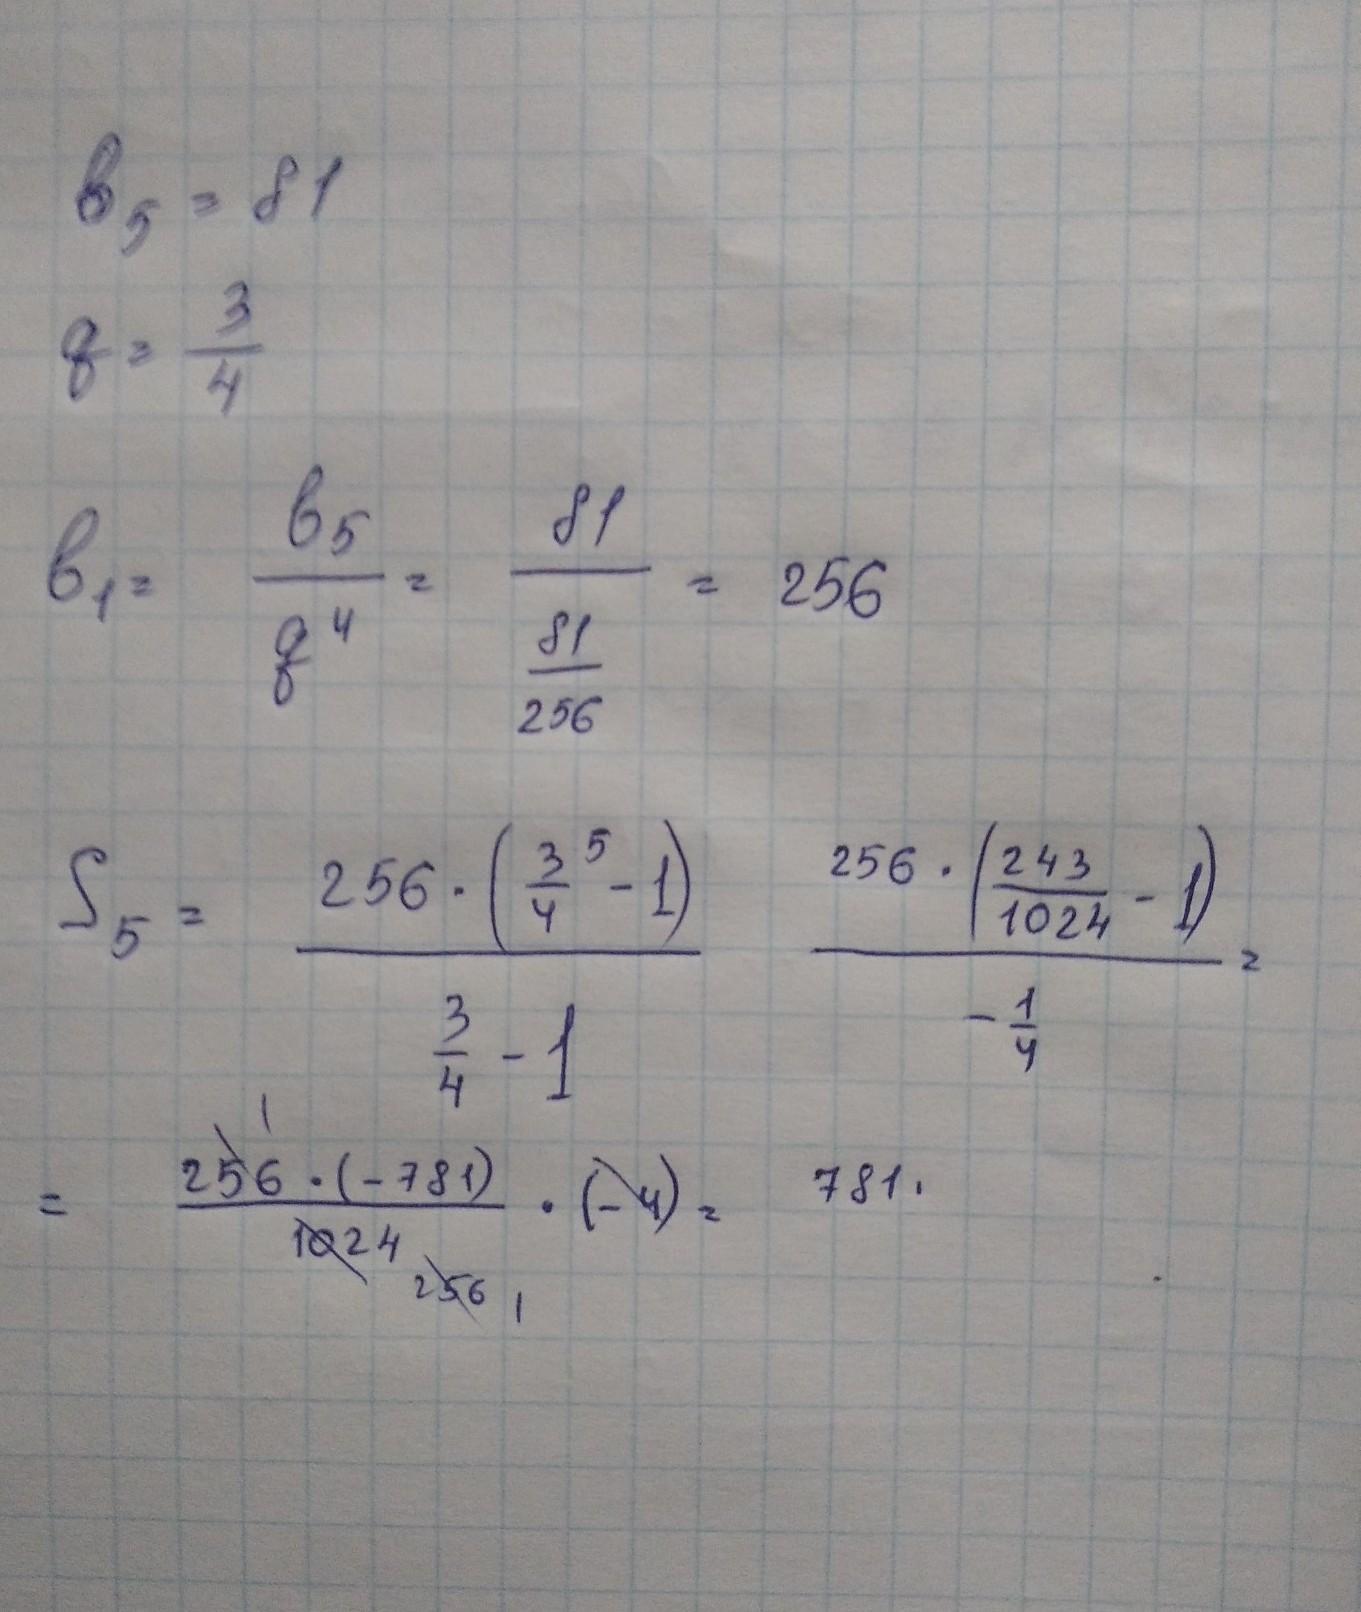 b₅ = 81
q = 3/4
b₁ = b₅/q⁴ = 81/(81/256) = 256
S₅ = 256 · (3/4⁵ - 1) / (3/4 - 1) 256 · (243/1024 - 1) / (-1/4) =
= 256 · (-781) / 1024 · (-4) = 781.
1 256 1